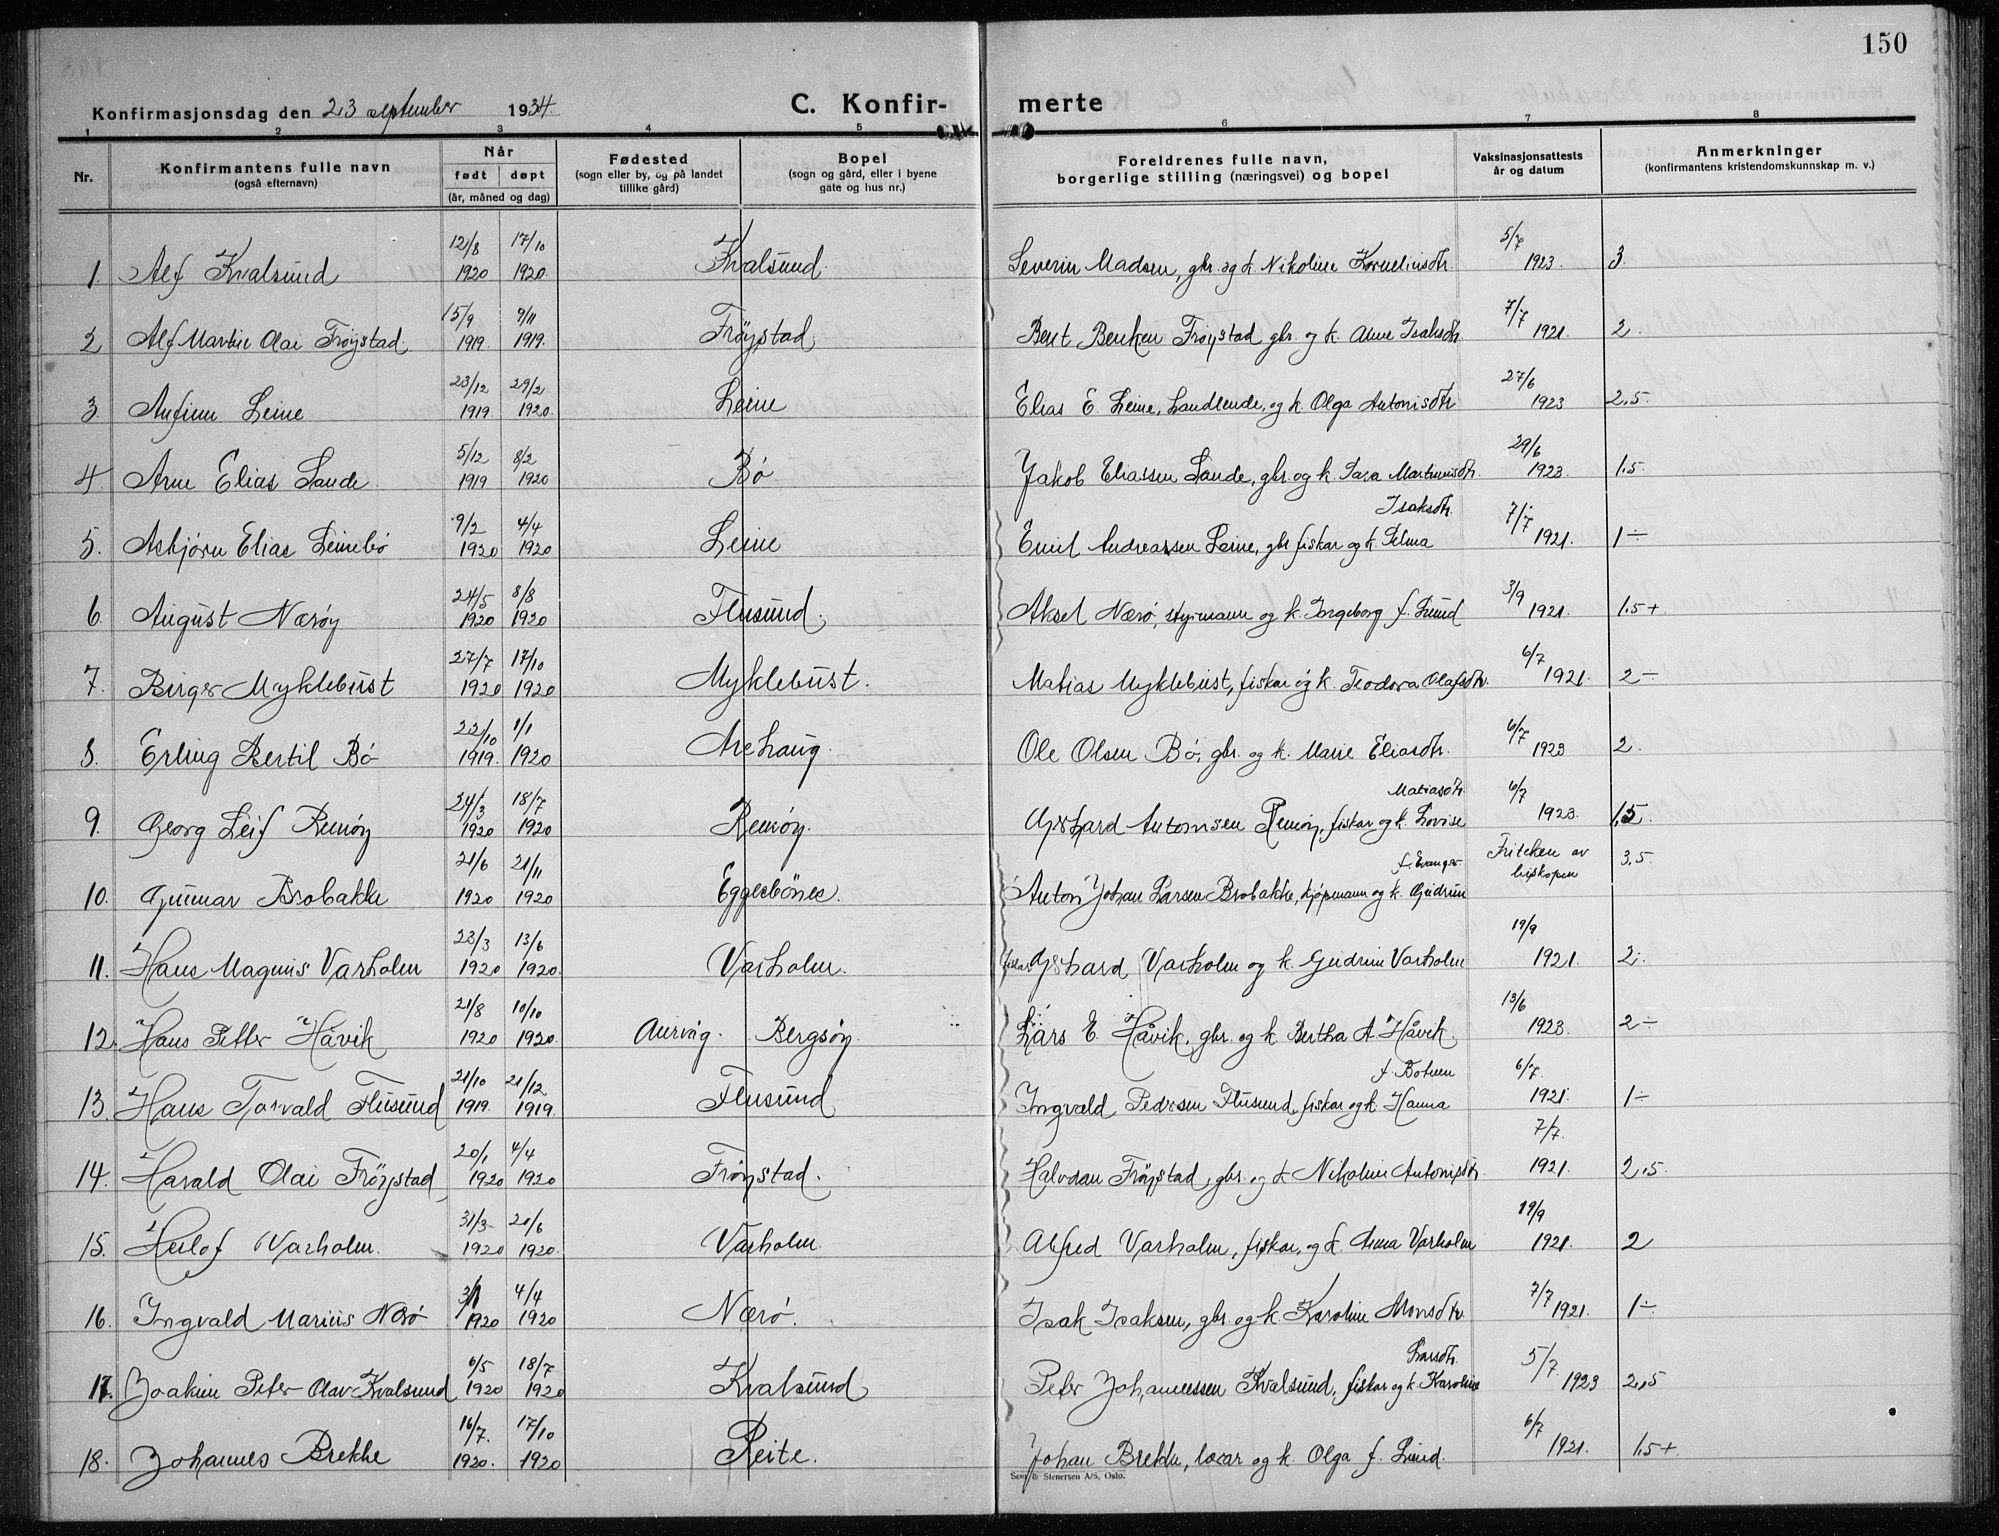 150
Konfirmasjonsdag den 23 september 1934. C. Konfir- merte
1 2 3 4 5 6 7 8
Nr. Konfirmantens fulle navn (også efternavn) Når født døpt (år, måned og dag) Fødested (sogn eller by, og på landet tillike gård) Bopel (sogn og gård, eller i byene gate og hus nr.) Foreldrenes fulle navn, borgerlige stilling (næringsvei) og bopel Vaksinasjonsattests år og datum Anmerkninger (konfirmantens kristendomskunnskap m. v.)
1. Alf Kvalsund 12/8 1920 17/10 1920. Kvalsund. Severin Madsen, gbr. og k. Nikoline Korneliusdtr. 5/7 1923. 3.
2 Alf Martin Olai Frøystad 15/9 1919. 9/11 1919. Frøystad. Bert Bentsen Frøystad gbr. og k. Anne Isaksdtr. 7/7 1921. 2.
3. Anfinn Leine 23/12 1919. 29/2 1920. Leine Elias E. Leine, handlende, og k. Olga Antonisdtr 27/6 1923 2,5.
4. Arne Elias Sande. 5/12 1919 8/2 1920 Bø Jakob Eliassen Sande, gbr. og k. Sara Martinusdtr. 29/6 1923. 1.5
5. Asbjørn Elias Leinebø 9/2 1920 4/4 1920 Leine Emil Andreassen Leine, gbr fiskar og k. Pelma Isaksdtr. 7/7 1921. 1÷
6. August Nærøy 24/5 1920 8/8 1920 Flusund. Aksel Nærø, styrmann og k. Ingeborg f. Lund 3/9 1921. 1.5+
7. Birger Myklebust 27/7 1920 17/10 1920 Myklebust. Matias Myklebust, fiskar og k. Teodora Olafsdtr. 6/7 1921. 2÷
8. Erling Bertil Bø 22/10 1919. 1/1 1920 Arehaug. Ole Olsen Bø, gbr. og k. Marie Eliasdtr. 6/7 1923 2.
9. Georg Leif Remøy 24/3 1920 18/7 1920 Remøy. Gerhard Antonsen Remøy, fiskar og k. Lovise Matiasdtr. 6/7 1923. 1,5.
10. Gunnar Brobakke 21/6 1920 21/11 1920 Eggesbønes. Anton Johan Larsen Brobakke, kjøpmann og k. Gudrun f. Evanger Friteken av biskopen 3,5.
11. Hans Magnus Varholm 23/3 1920 13/6 1920. Varholm. fiskar Gerhard Varholm og k. Gudrun Varholm 19/9 1921. 2.
12. Hans Petter Håvik 21/8 1920 10/10 1920. Aurvåg. Bergsøy. Lars E. Håvik, gbr. og k Bertha A Håvik. 13/6 1923. 2÷
13. Hans Torvald Flusund 21/10 1919. 21/12 1919. Flusund Ingvald Pedersen Flusund, fiskar og k. Hanna f. Botnen 6/7. 1921. 1÷
14. Harald Olai Frøystad 20/1 1920 4/4 1920 Frøystad. Halvdan Frøystad, gbr. og k Nikoline Antonisdtr 7/7. 1921. 2.5
15. Herlof Varholm. 31/3 1920 20/6 1920. Varholm. Alfred Varholm, fiskar, og k. Anna Varholm 19/9 1921. 2
16. Ingvald Marius Nærø 3/1 1920 4/4 1920 Nærø. Isak Isaksen, gbr. og k. Karoline Monsdtr. 7/7 1921. 1÷
17. Joakim Peter Olav Kvalsund 6/5 1920 18/7 1920 Kvalsund Peter Johannessen Kvalsund, fiskar og k. Karoline Larsdtr. 5/7. 1923 2,5
18. Johannes Brekke 16/7. 1920. 17/10 1920 Reite. Johan Brekke, lærar og k. Olga f. Lund. 6/7 1921. 1.5+.
Sem & Stenersen A/S, Oslo.